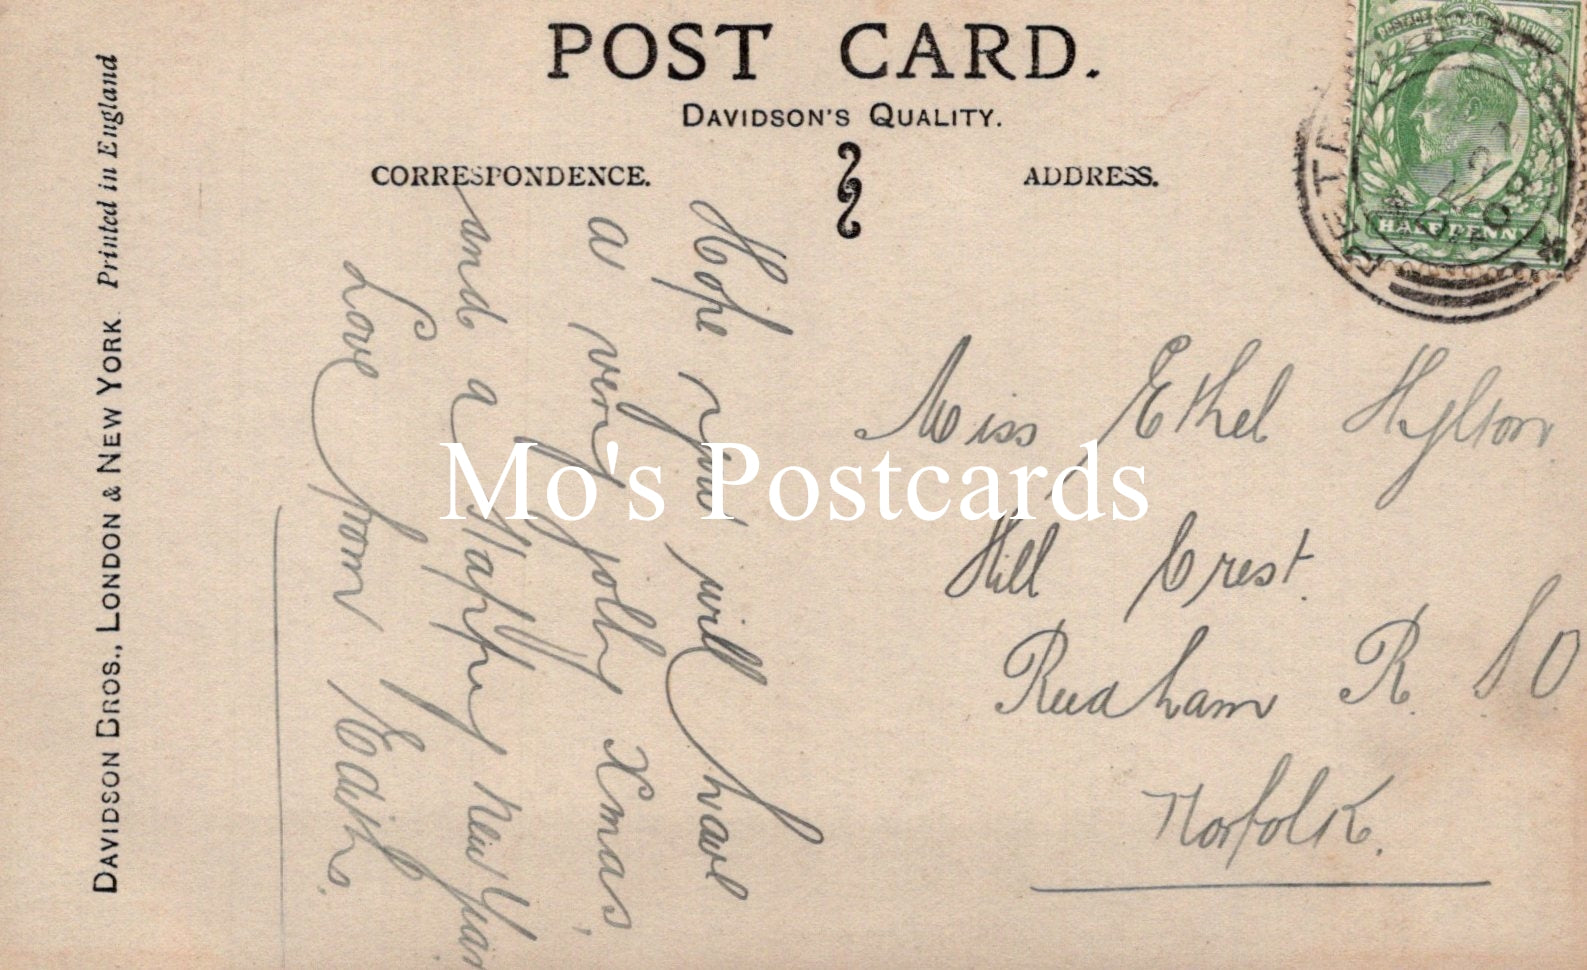 POST CARD.
DAVIDSON'S QUALITY.
CORRESPONDENCE.
ADDRESS.
DAVIDSON BROS., LONDON & NEW YORK Printed in England
Hope you will have
a very jolly Xmas,
and a Happy New Year
Love from Edith.
Miss Ethel Hylton
Hill Crest.
Reedham R. S O
Norfolk.
HALFPENNY
08
Mo's Postcards